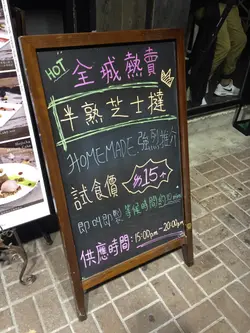 HOT 全城熱賣
半熟芝士撻
HOMEMADE.強烈推介
試食價 $15
即叫即製 等候時間約
供應時間:15:00pm-20:00pm